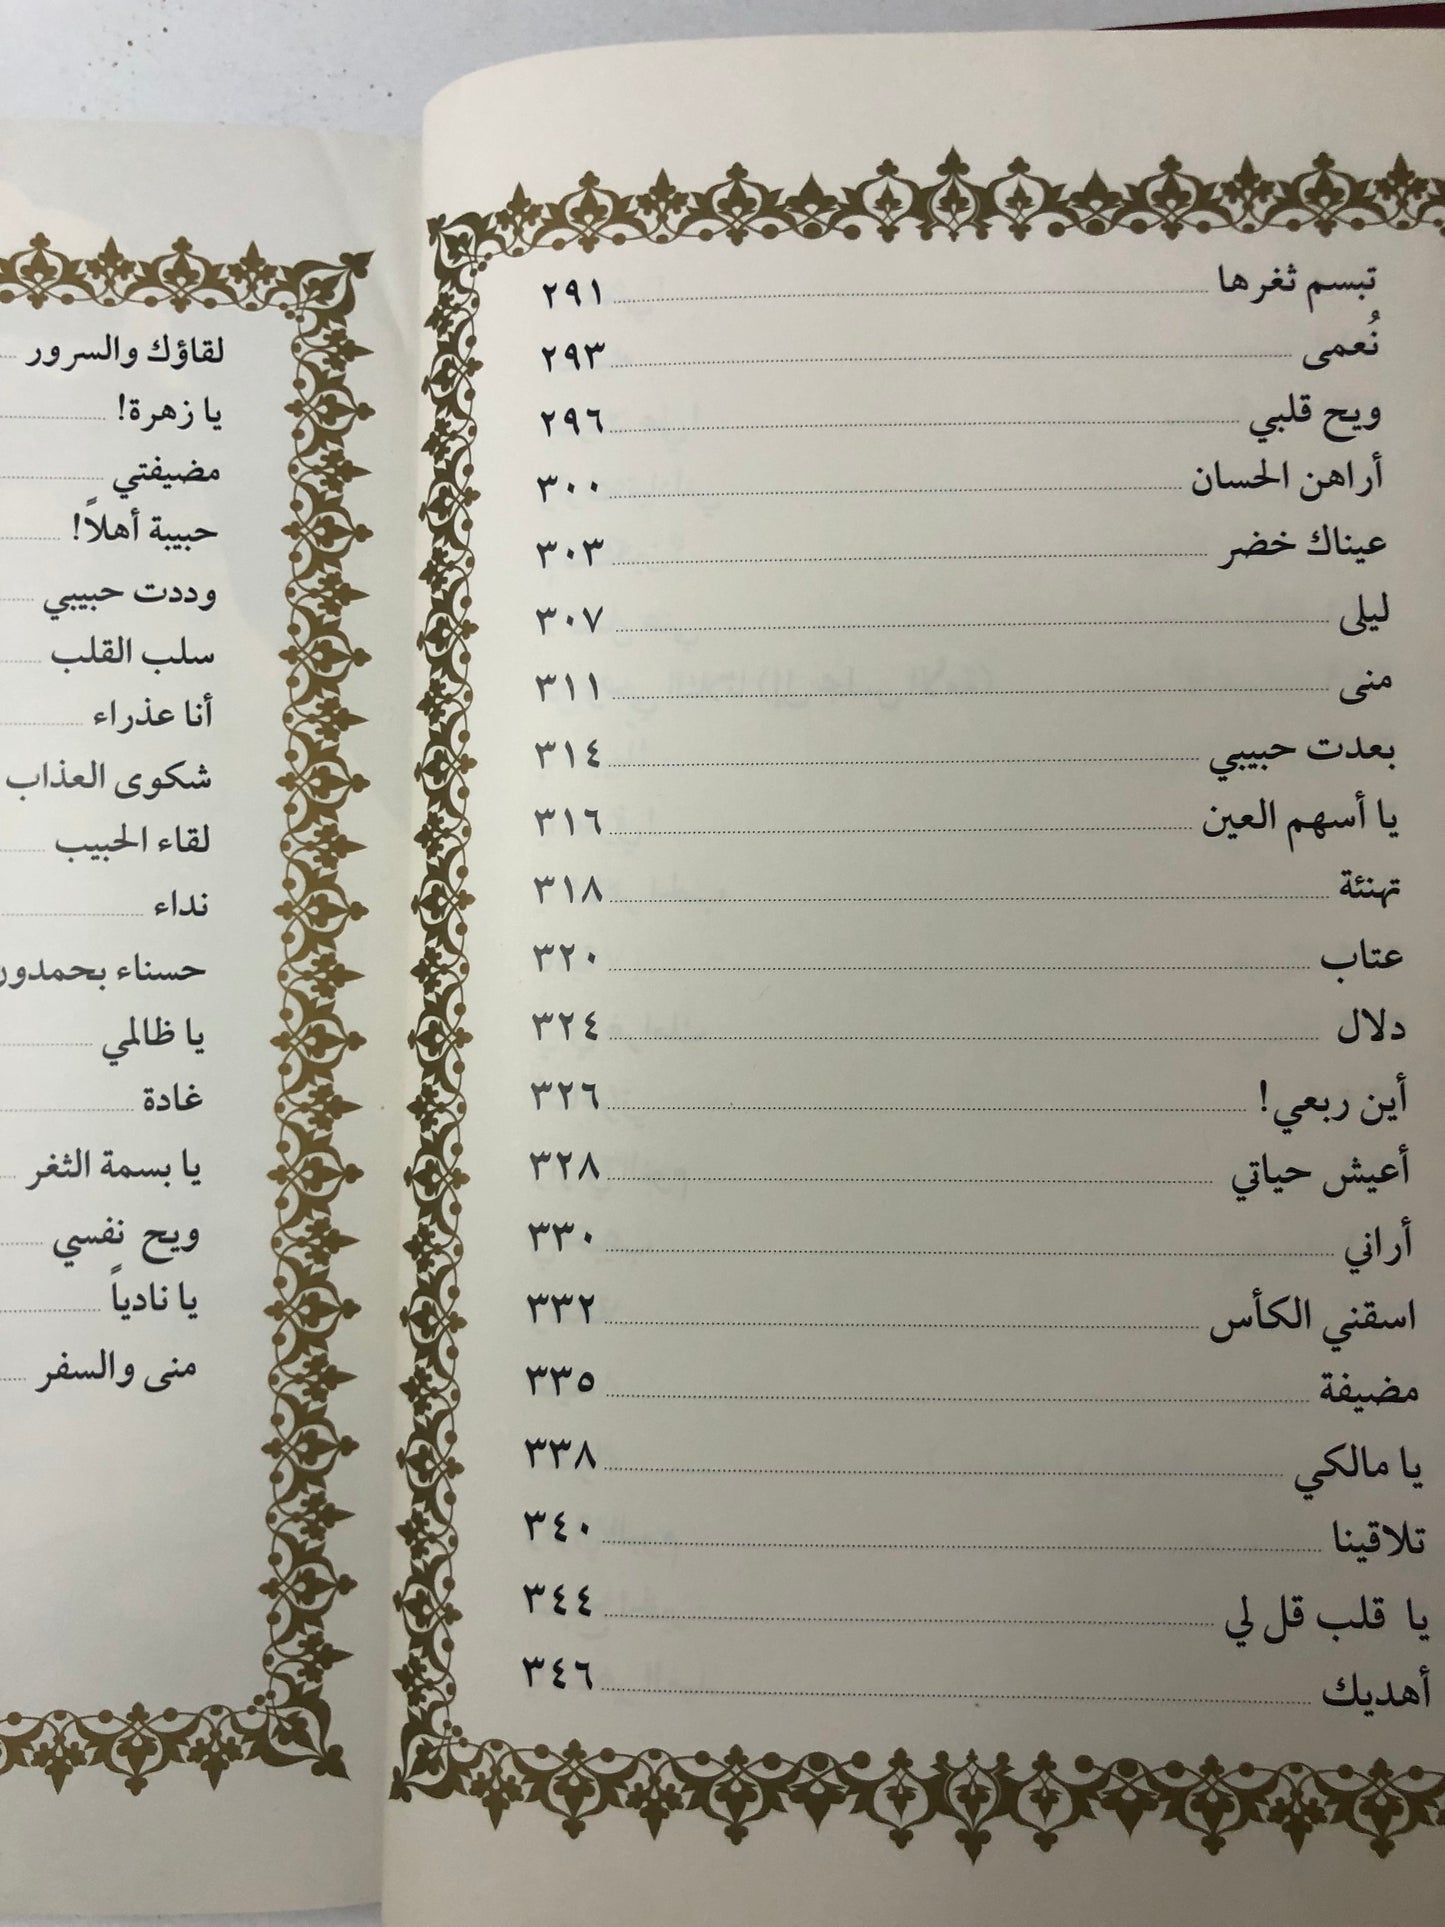 تبسم ثغرها ٢٩١
نُعمى ٢٩٣
ويح قلبي ٢٩٦
أراهن الحسان ٣٠٠
عيناك خضر ٣٠٣
ليلى ٣٠٧
منى ٣١١
بعدت حبيبي ٣١٤
يا أسهم العين ٣١٦
تهنئة ٣١٨
عتاب ٣٢٠
دلال ٣٢٤
أين ربعي! ٣٢٦
أعيش حياتي ٣٢٨
أراني ٣٣٠
اسقني الكأس ٣٣٢
مضيفة ٣٣٥
يا مالكي ٣٣٨
تلاقينا ٣٤٠
يا قلب قل لي ٣٤٤
أهديك ٣٤٦
لقاؤك والسرور
يا زهرة!
مضيفتي
حبيبة أهلاً!
وددت حبيبي
سلب القلب
أنا عذراء
شكوى العذاب
لقاء الحبيب
نداء
حسناء بحمدون
يا ظالمي
غادة
يا بسمة الثغر
ويح نفسي
يا نادياً
منى والسفر